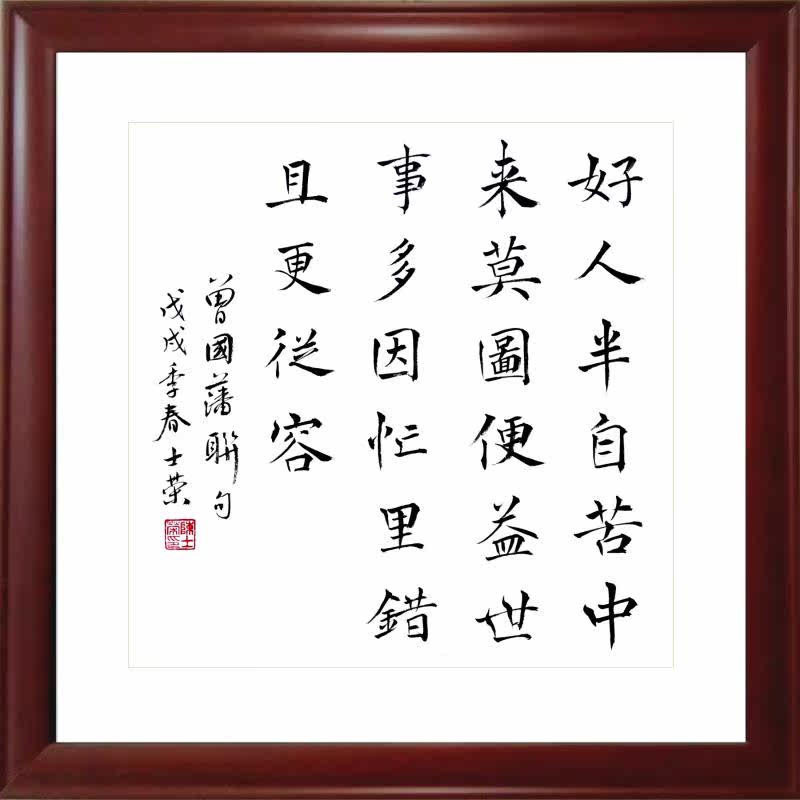 好人半自苦中
来莫圖便益世
事多因忙里錯
且更従容
曾國藩聯句
戊戌季春士榮
陳士榮印